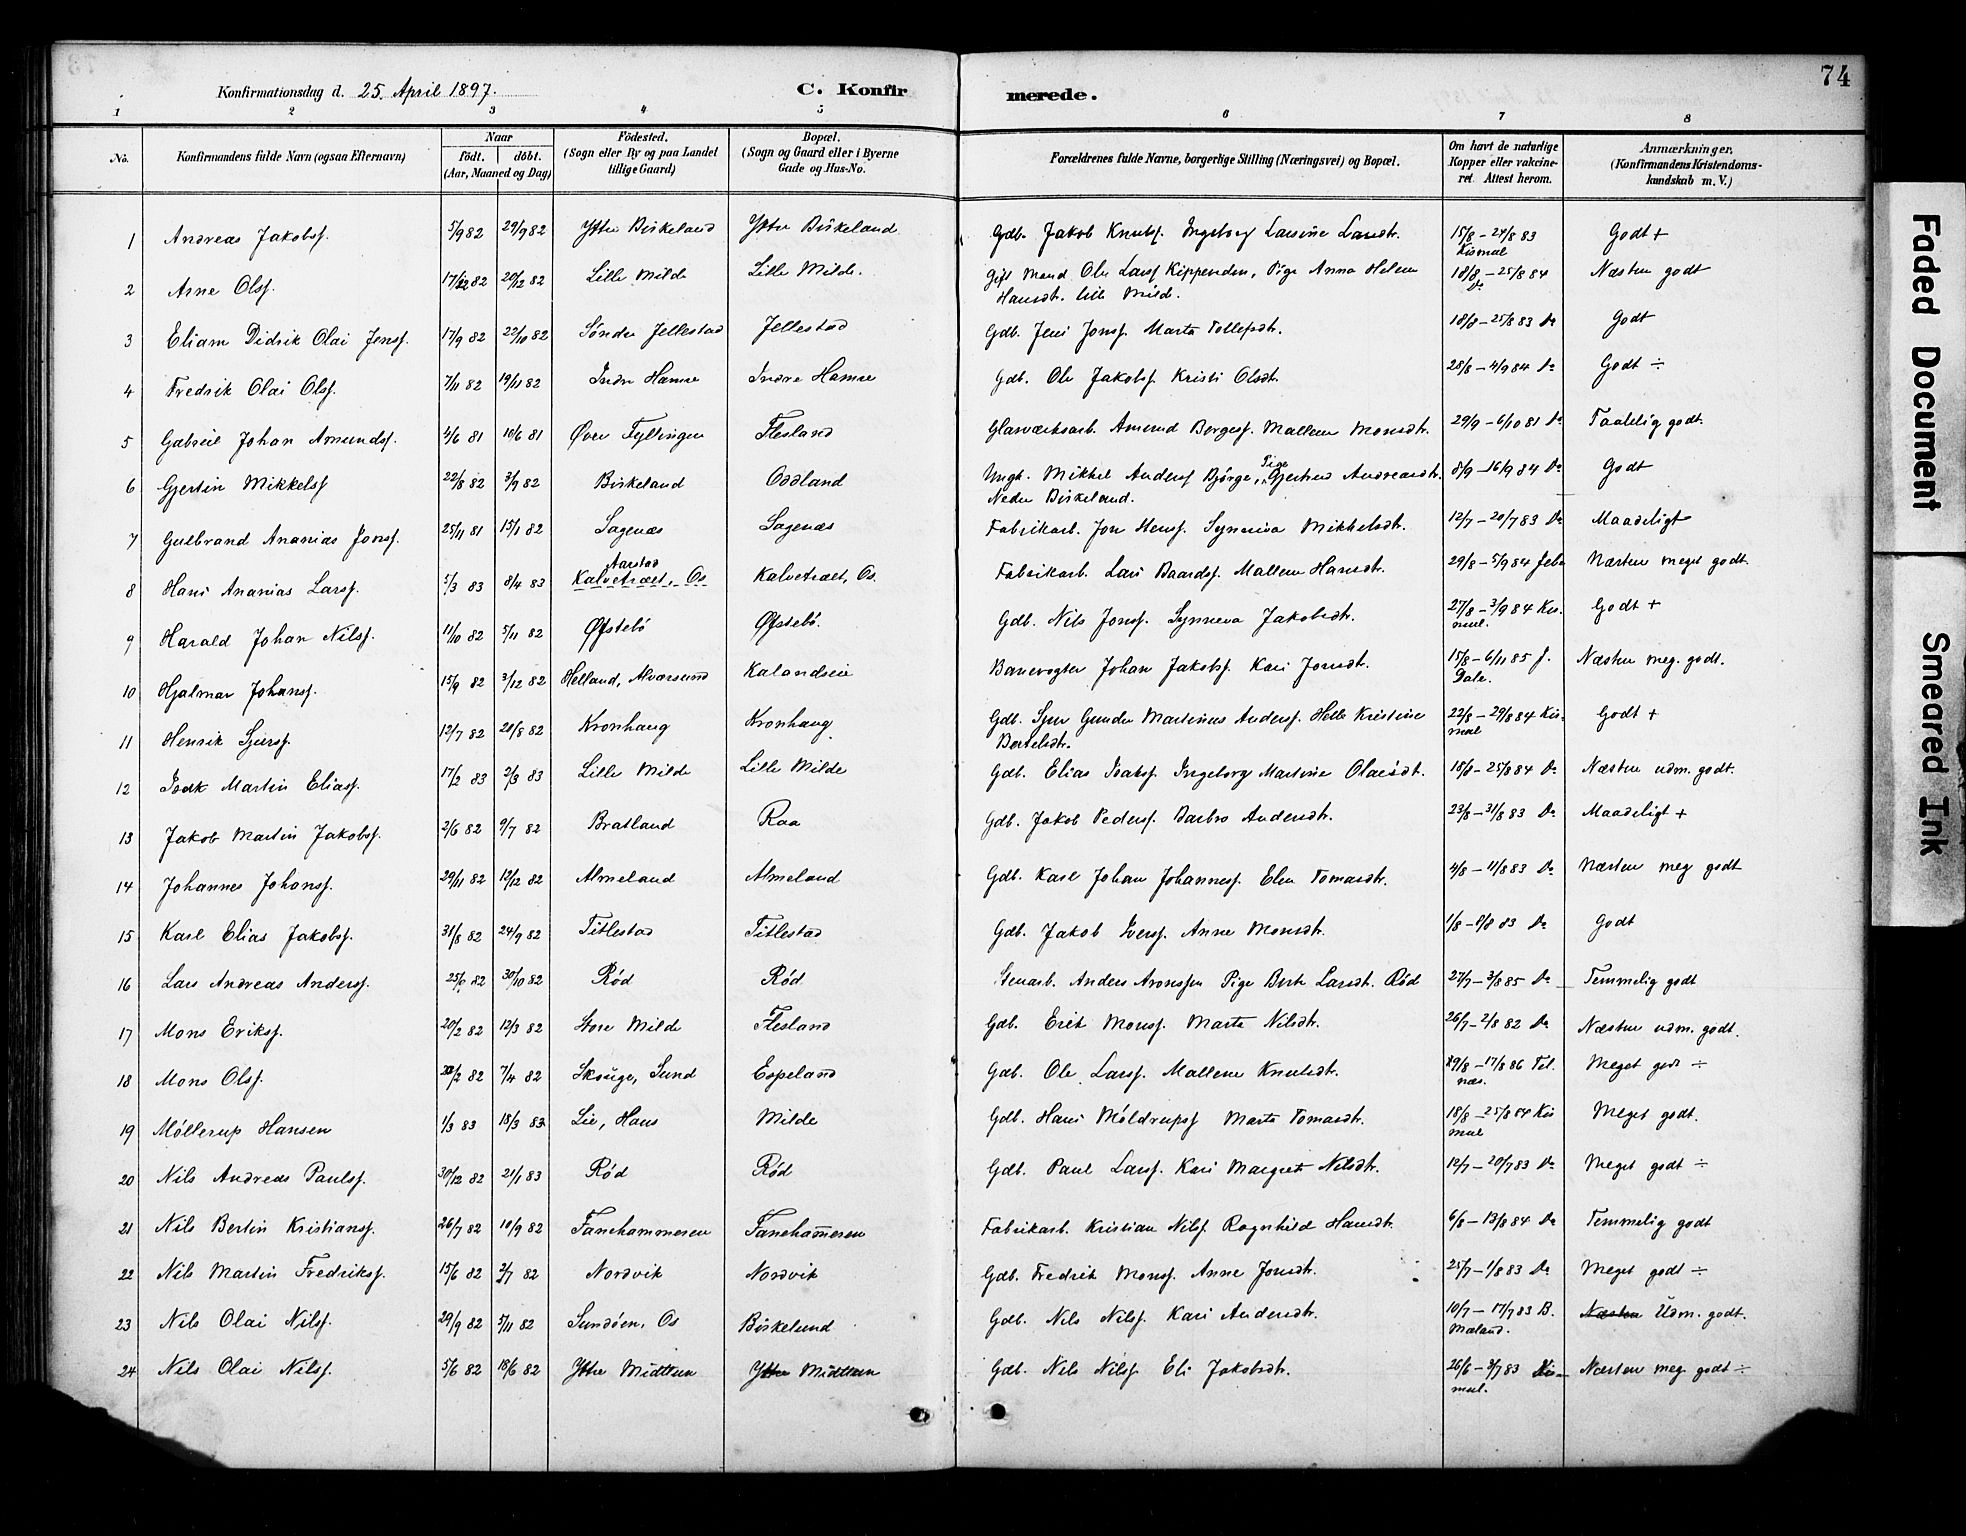 74
Konfirmationsdag d. 25. April 1897.
C. Konfirmerede.
1 2 3 4 5 6 7 8
No.
Konfirmandens fulde Navn (ogsaa Efternavn)
Naar
födt. döbt.
(Aar, Maaned og Dag)
Födested.
(Sogn eller By og paa Landet
tillige Gaard)
Bopæl.
(Sogn og Gaard eller i Byerne
Gade og Hus-No.
Forældrenes fulde Navne, borgerlige Stilling (Næringsvei) og Bopæl.
Om havt de naturlige
Kopper eller vakcine-
ret. Attest herom.
Anmærkninger,
(Konfirmandens Kristendoms-
kundskab m. V.)
1 Andreas Jakobsf. 5/9 82 29/9 82 Ytre Birkeland Ytre Birkeland Gdb. Jakob Knutsf. Ingeborg Larsine Larsdt. 15/8 – 24/8 83 Godt +
Kismul
2 Arne Olsf. 17/12 82 20/12 82 Lille Milde Lille Milde. Gift Mand Ole Larsf. Kippersden, Pige Anna Helene 18/8 – 25/8 84 Næsten godt
Hansdt. lille Mild. Do
3 Eliam Didrik Olai Jensf. 17/9 82 22/10 82 Søndre Jellestad Jellestad Gdb. Jens Jonsf. Marta Tollefsdt. 18/8 – 25/8 83 Do Godt
4 Fredrik Olai Olsf. 7/11 82 19/11 82 Indre Hamre Indre Hamre Gdb. Ole Jakobsf. Kristi Olsdt. 28/8 – 4/9 84 Do Godt ÷
5 Gabriel Johan Amundsf. 4/6 81 10/6 81 Øvre Fyllingen Flesland Glasværksarb. Amund Børgesf. Mallene Monsdt. 29/9 – 6/10 81 Do Taalelig godt.
6 Gjertin Mikkelsf 22/8 82 3/9 82 Birkeland Oddland Ungk. Mikkel Andersf Bjørge, Pige Gjertrud Andreasdt. 8/9 – 16/9 84 Do Godt
Nedre Birkeland.
7 Gulbrand Ananias Jonsf. 25/11 81 15/1 82 Sagenæs Sagenæs Fabrikarb. Jon Hensf. Synneva Mikkelsdt. 12/7 – 20/7 83 Do Maadeligt
8 Hans Ananias Larsf. 5/3 83 8/4 83 Aarstad Kalvetræet, Os Kalvetræet, Os. Fabrikarb. Lars Baardsf. Mallene Hansdt. 29/8 – 5/9 84 Næsten meget godt.
9 Harald Johan Nilsf. 11/10 82 5/11 82 Øfstebö Øfstebö. Gdb. Nils Jonsf. Synneva Jakobsdt. 27/8 – 3/9 84 Kis. Godt +
mul.
10 Hjalmar Johansf. 15/9 82 3/12 82 Helland, Alversund Kalandseie Banevogter Johan Jakobsf. Kari Jonsdt. 15/8 – 6/11 85 J. Næsten meg. godt.
Dale.
11 Henrik Sjursf. 12/7 82 20/8 82 Kronhaug Kronhaug Gdb. Sjur Gunder Martinus Andersf. Helle Kristine 22/8 – 29/8 84 Kis- Godt +
Bertelsdt. mul
12 Isak Martin Eliasf. 17/2 83 2/3 83 Lille Milde Lille Milde Gdb. Elias Isaksf. Ingeborg Martine Olaisdt. 18/8 – 25/8 84 Do Næsten udm. godt.
13 Jakob Martin Jakobsf. 2/6 82 9/7 82 Bratland Raa Gdb. Jakob Pedersf. Barbro Andersdt. 23/8 – 31/8 83 Do Maadeligt +
14 Johannes Johansf. 29/11 82 13/12 82 Almeland Almeland Gdb. Karl Johan Johannesf. Elen Tomasdt. 4/8 – 11/8 83 Do Næsten meg godt
15 Karl Elias Jakobsf. 31/8 82 24/9 82 Titlestad Titlestad Gdb. Jakob Iversf. Anne Monsdt. 1/8 – 8/8 83 Do Godt
16 Lars Andreas Andersf. 82 30/10 82 Röd Röd Stenarb. Anders Aronssen Pige Berte Larsdt. Röd 27/7 – 3/8 85 Do Temmelig godt
17 Mons Eriksf. 20/2 82 12/3 82 Store Milde Flesland Gdb. Erik Monsf. Marta Nilsdt. 26/7 – 2/8 82 Do Næsten udm. godt.
18 Mons Olsf. 82 7/4 82 Skouge, Sund Espeland Gdb. Ole Larsf. Mallene Knutsdt. – 17/8 86 Tel. Meget godt ÷
næs.
19 Möllerup Hansen 1/3 83 18/3 83 Lie, Haus Milde Gdb. Hans Möldrupsf Marta Tomasdt. 18/8 – 25/8 84 Kis Meget godt.
mul
20 Nils Andreas Paulsf. 30/12 82 21/1 83 Röd Röd Gdb. Paul Larsf. Kari Margrete Nilsdt. 12/7 – 20/7 83 Do Meget godt ÷
21 Nils Bertin Kristiansf. 26/7 82 10/9 82 Fanehammeren Fanehammeren Fabrikarb. Kristian Nilsf. Ragnhild Hansdt. 6/8 – 13/8 84 Do Temmelig godt
22 Nils Martin Fredriksf. 15/6 82 2/7 82 Nordvik Nordvik Gdb. Fredrik Monsf. Anne Jonsdt. 25/7 – 1/8 83 Do Meget godt ÷
23 Nils Olai Nilsf. 29/9 82 5/11 82 Sundöen, Os Birkelund Gdb. Nils Nilsf. Kari Andersdt. 10/7 – 17/7 83 B. Næsten Udm. godt.
Mæland.
24 Nils Olai Nilsf. 5/6 82 18/6 82 Ytre Midttun Ytre Midttun Gdb. Nils Nilsf Eli Jakobsdt. 26/6 – 3/7 83 Kis- Næsten meg godt ÷
mul.
Faded Document
Smeared Ink